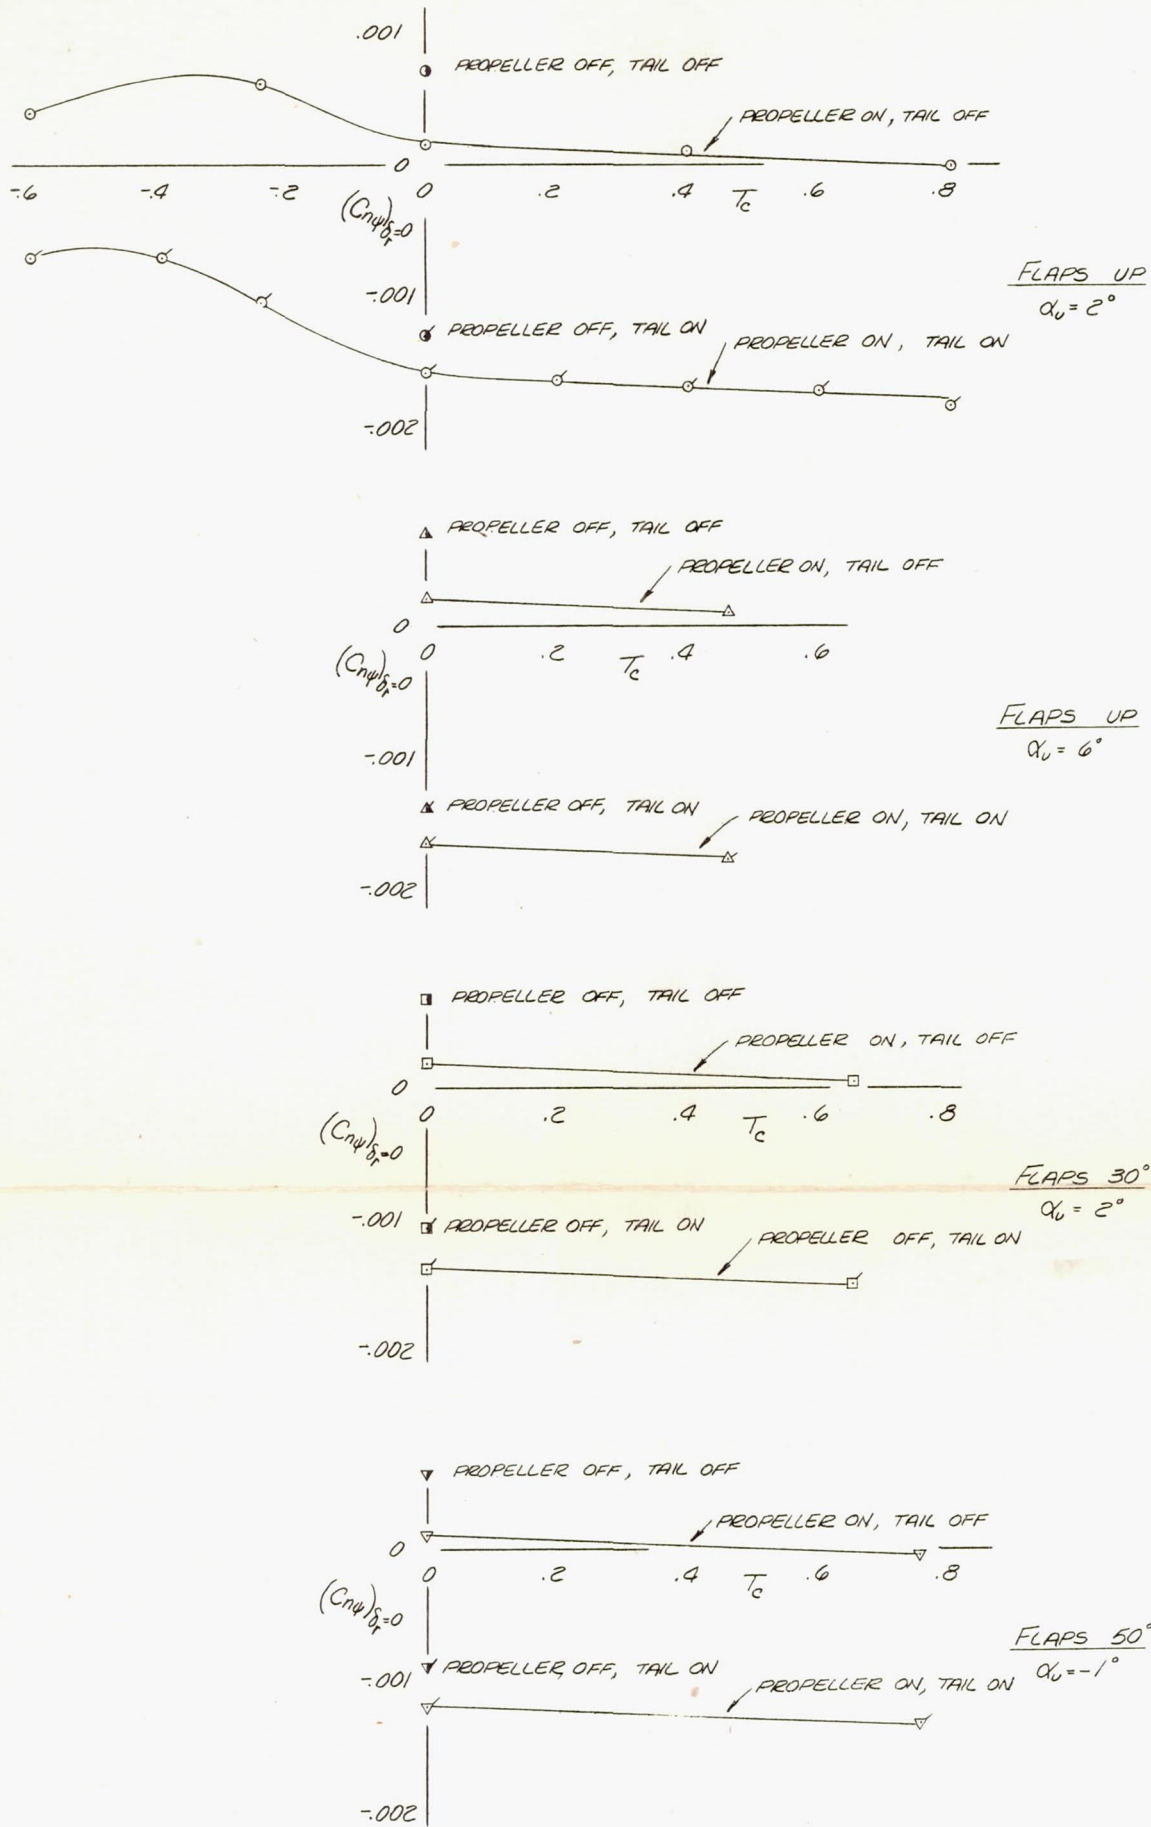 .001
PROPELLER OFF, TAIL OFF
PROPELLER ON, TAIL OFF
0
-.6 -.4 -.2 0 .2 .4 Tc .6 .8
(Cnψ)δr=0
-.001
FLAPS UP
αu = 2°
PROPELLER OFF, TAIL ON
PROPELLER ON, TAIL ON
-.002
PROPELLER OFF, TAIL OFF
PROPELLER ON, TAIL OFF
0
0 .2 Tc .4 .6
(Cnψ)δr=0
FLAPS UP
αu = 6°
-.001
PROPELLER OFF, TAIL ON
PROPELLER ON, TAIL ON
-.002
PROPELLER OFF, TAIL OFF
PROPELLER ON, TAIL OFF
0
0 .2 .4 Tc .6 .8
(Cnψ)δr=0
FLAPS 30°
αu = 2°
-.001
PROPELLER OFF, TAIL ON
PROPELLER OFF, TAIL ON
-.002
PROPELLER OFF, TAIL OFF
PROPELLER ON, TAIL OFF
0
0 .2 .4 Tc .6 .8
(Cnψ)δr=0
FLAPS 50°
αu = -1°
-.001
PROPELLER OFF, TAIL ON
PROPELLER ON, TAIL ON
-.002